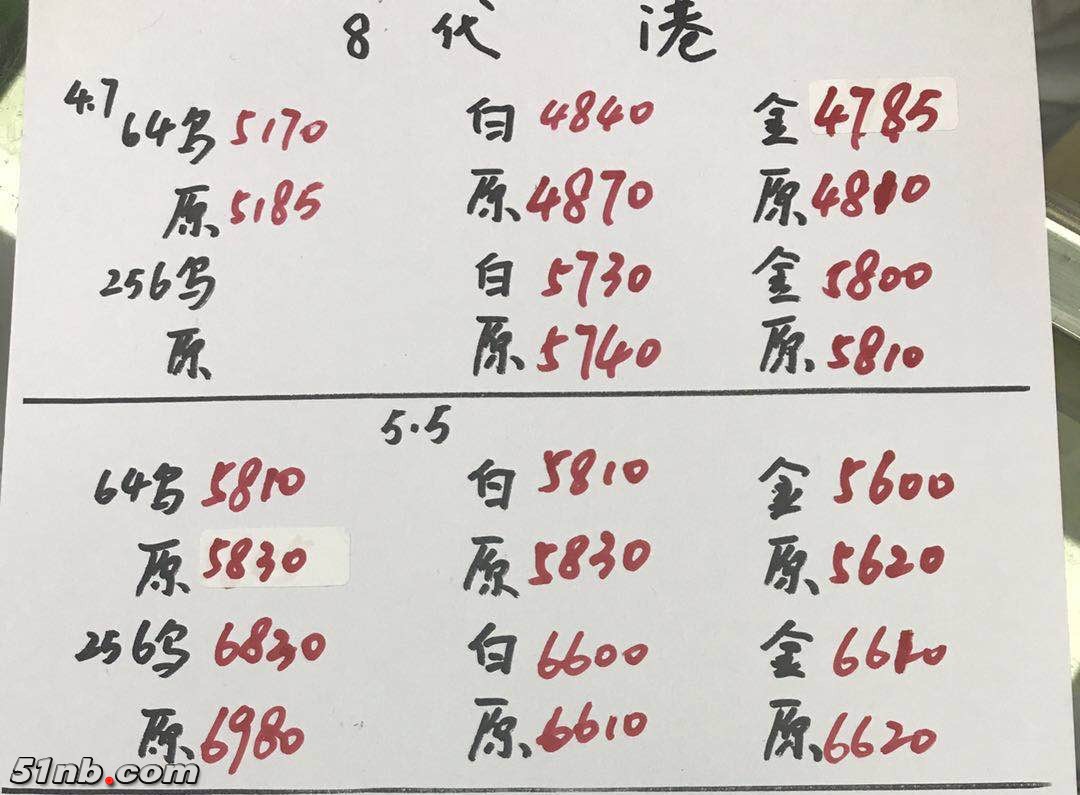 8 代 港
4.7
64乌 5170 白 4840 金 4785
原 5185 原 4870 原 4810
256乌 白 5730 金 5800
原 原 5740 原 5810
5.5
64乌 5810 白 5810 金 5600
原 5830 原 5830 原 5620
256乌 6830 白 6600 金 6610
原 6980 原 6610 原 6620
51nb.com